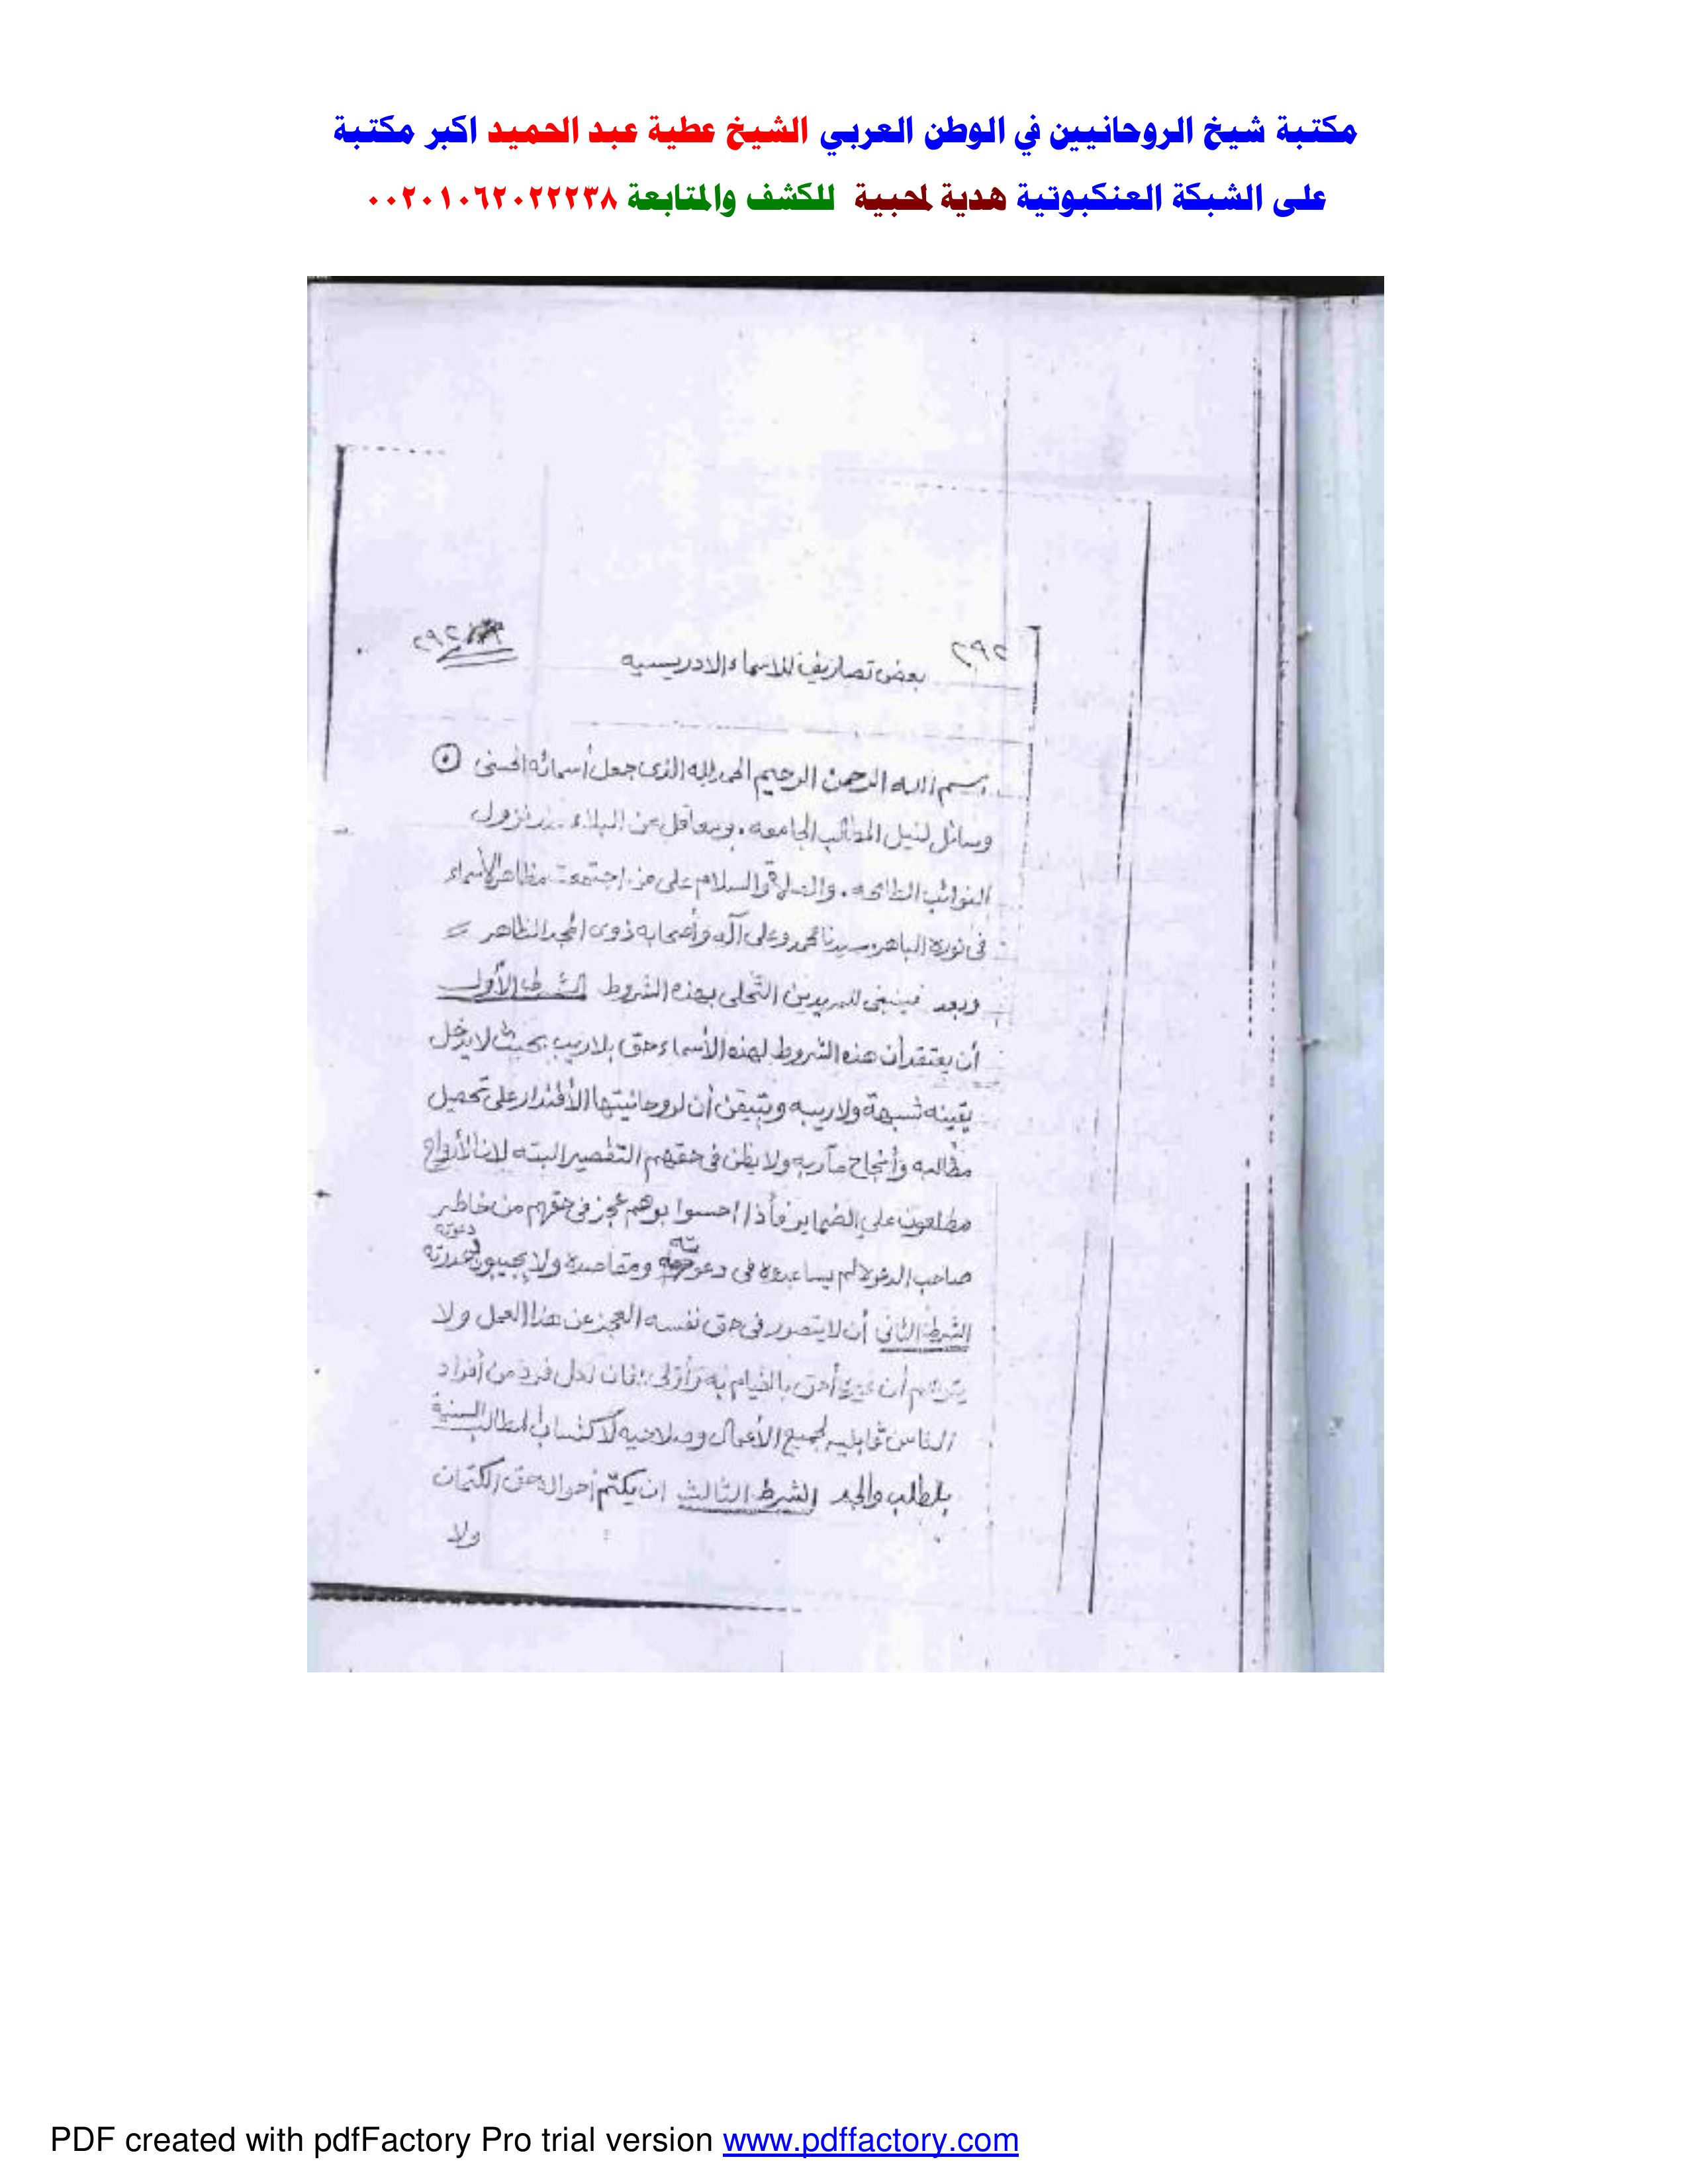 مكتبة شيخ الروحانيين في الوطن العربي الشيخ عطية عبد الحميد اكبر مكتبة
على الشبكة العنكبوتية هدية لمحبية للكشف والمتابعة ٠٠٢٠١٠٦٢٠٢٢٢٣٨
٢٩٢ بعض تصاريف للاسماء الادريسيه ٢٩٢
بسم الله الرحمن الرحيم الحمد لله الذى جعل أسمائه الحسنى
وسائل لنيل المطالب الجامعه . ومعاقل عن البلاء نزول
النوائب . والصلاة والسلام على من اجتمعت مظاهر الأسماء
فى نوره الباهر سيدنا محمد وعلى آله وأصحابه ذوى المجد الظاهر
وبعد فينبغى للمريدين التحلى بهذه الشروط الشرط الأول
أن يعتقد أن هذه الشروط لهذه الأسماء حق بلا ريب بحيث لا يدخل
يقينه شبهة ولا ريبه ويتيقن أن لروحانيتها الأقتدار على تحصيل
مطالبه وأنجاح مآربه ولا يظن فى حقهم التقصير البته لان الأرواح
مطلعون على الضماير فأذا احسوا بوهم عجز فى حقهم من خاطر
صاحب الدعوة لم يساعدوه فى ومقاصده ولا يجيبون دعوته
الشرط الثانى أن لا يتصور فى حق نفسه العجز عن هذا العمل ولا
يتوهم أن غيره أحق بالقيام به فان لكل فرد من أفراد
الناس قابليه لجميع الأعمال وصلاحيه لأكتساب المطالب السنية
بلطلب والجد الشرط الثالث ان يكتم أحواله حق الكتمان
ولا
PDF created with pdfFactory Pro trial version www.pdffactory.com